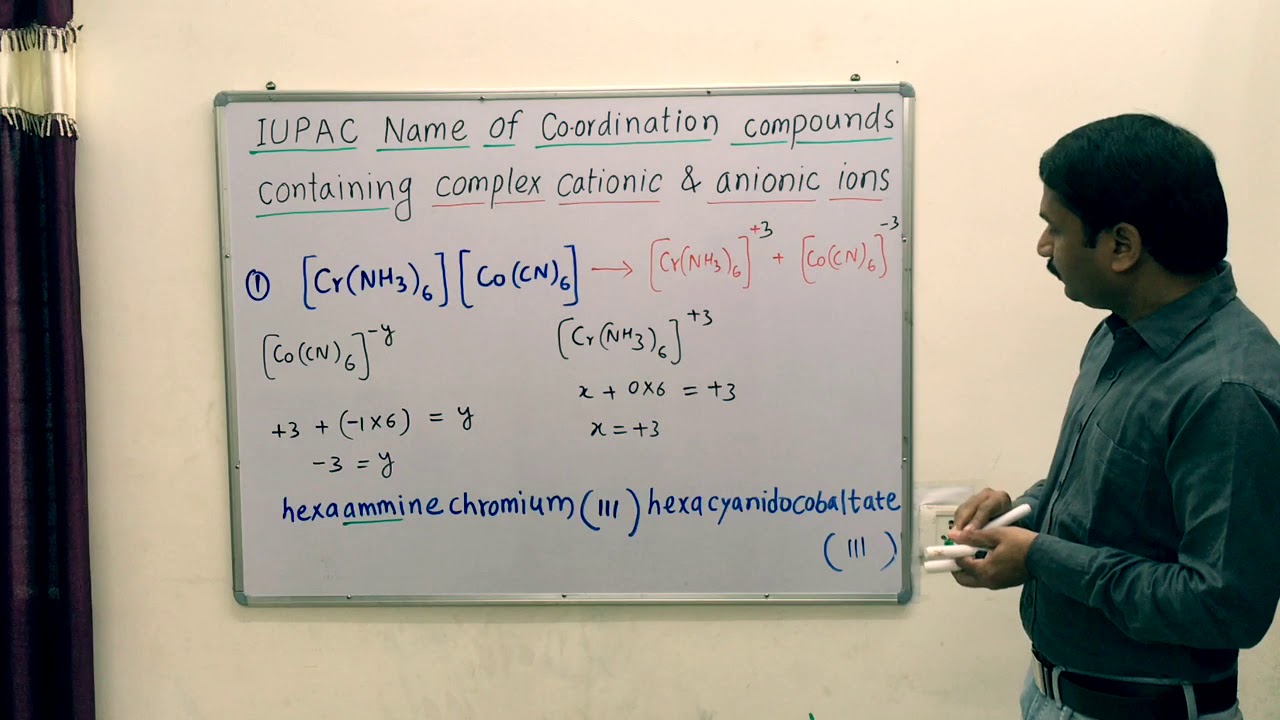 IUPAC Name of Co-ordination compounds
containing complex cationic & anionic ions
① [Cr(NH3)6][Co(CN)6] → [Cr(NH3)6]+3 + [Co(CN)6]-3
[Co(CN)6]-y
+3 + (-1×6) = y
-3 = y
[Cr(NH3)6]+3
x + 0×6 = +3
x = +3
hexaamminechromium(III) hexacyanidocobaltate
(III)